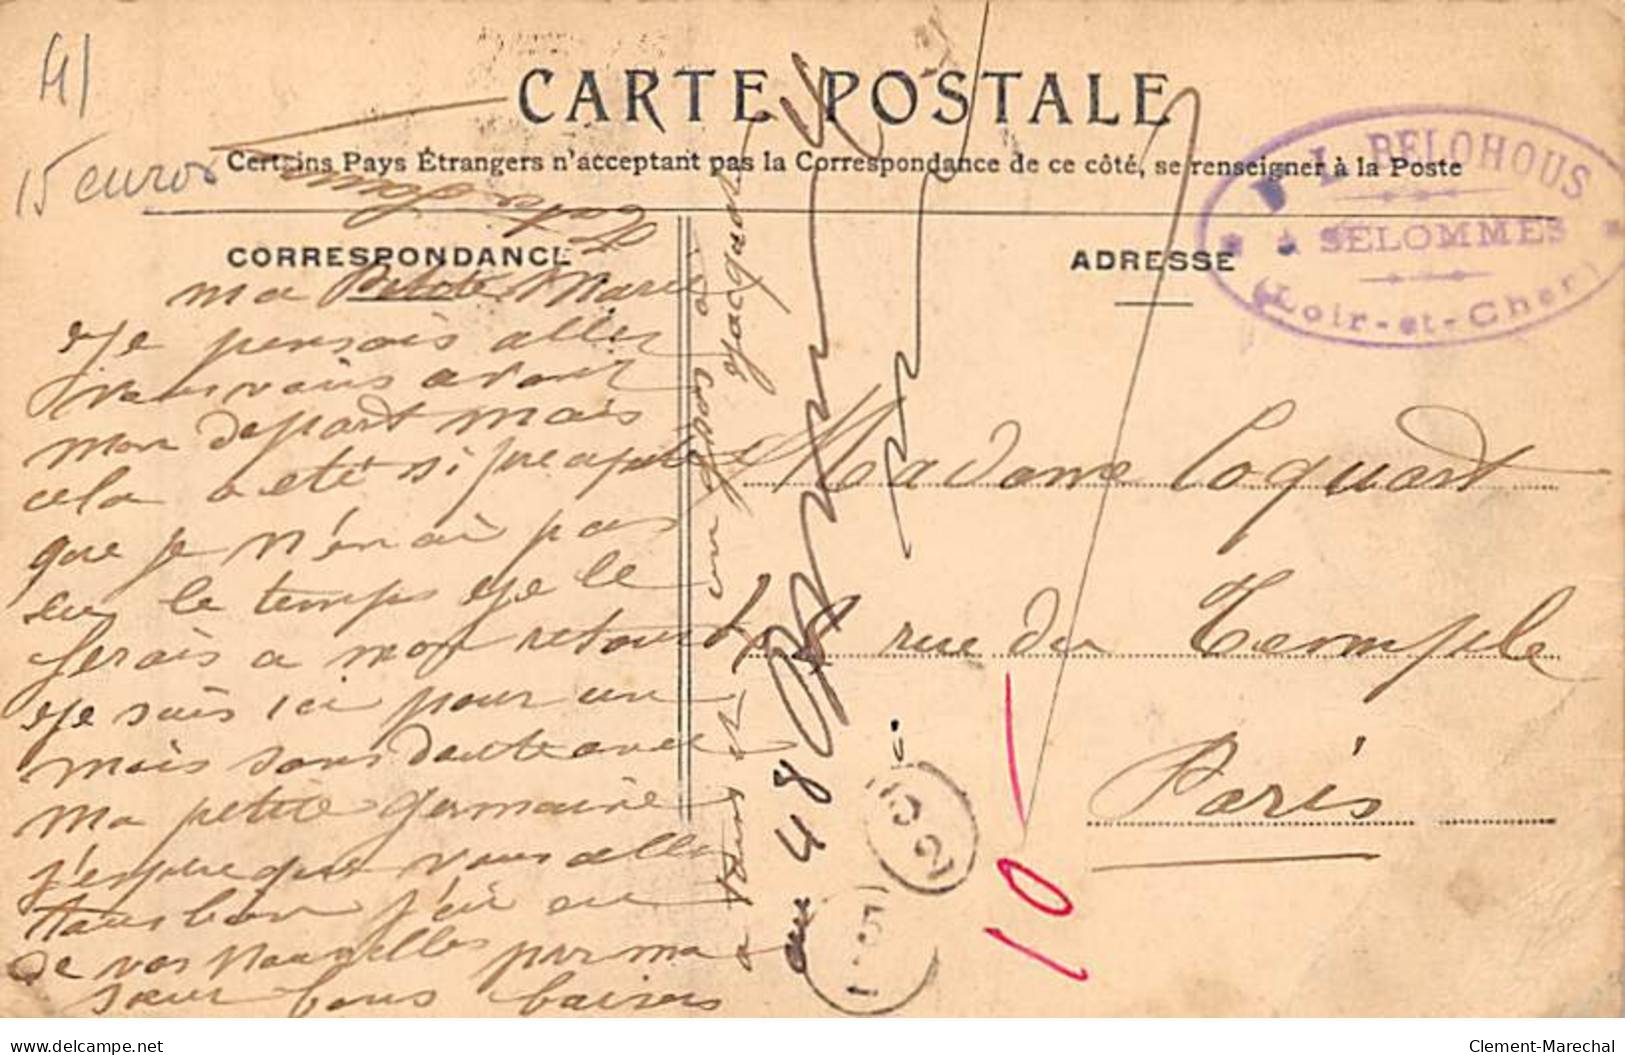 41
15 euros
CARTE POSTALE
Certains Pays Étrangers n'acceptant pas la Correspondance de ce côté, se renseigner à la Poste
CORRESPONDANCE
ADRESSE
BELOHOUS
à SELOMMES
(Loir-et-Cher)
ma Petite Marie
Je pensais aller
vous voir avant
mon depart mais
cela a eté si
que je n'en ai pas
eu le temps je le
ferais a mon retour
Je suis ici pour un
mois sans doute avec
ma petite germaine
j'espere que vous allez
tous bien j'ai eu
de vos nouvelles par ma
sœur bons baisers
a tous et un gros a
Jacquot
Madame Coquart
rue du Temple
Paris
au 48
10
delcampe.net
Clement-Marechal